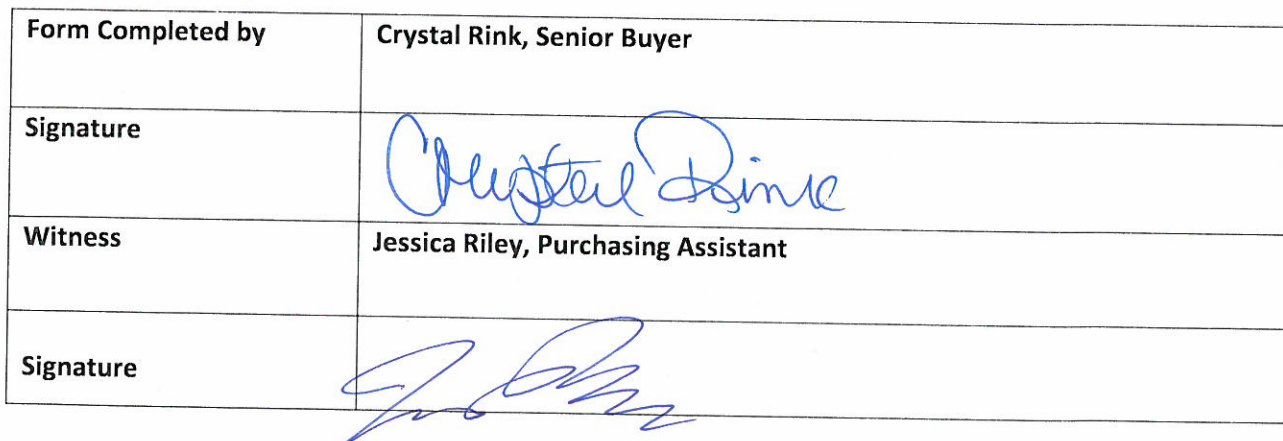 Form Completed by Crystal Rink, Senior Buyer
Signature Crystal Rink
Witness Jessica Riley, Purchasing Assistant
Signature